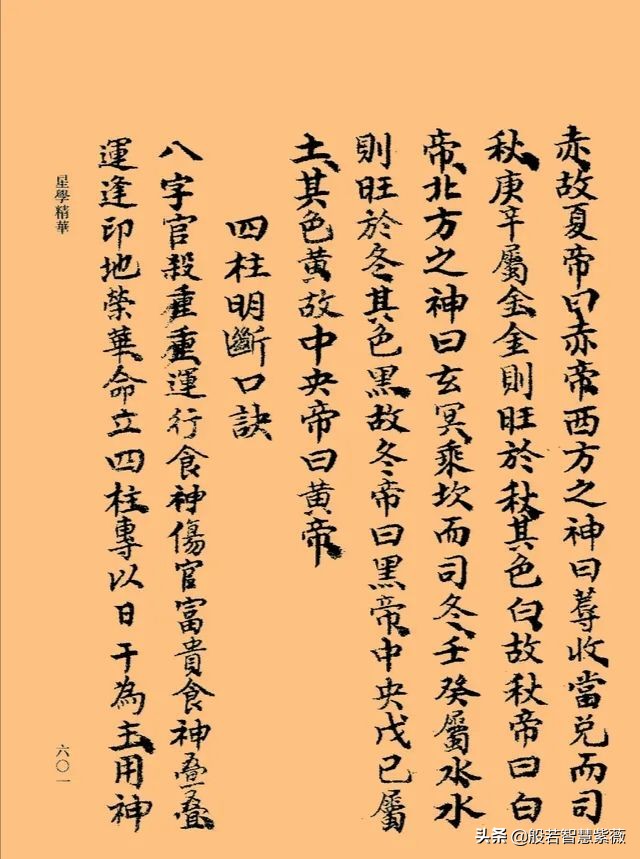 赤故夏帝曰赤帝西方之神曰蓐收當兑而司
秋庚辛屬金金則旺於秋其色白故秋帝曰白
帝北方之神曰玄冥乘坎而司冬壬癸屬水水
則旺於冬其色黑故冬帝曰黑帝中央戊己屬
土其色黃故中央帝曰黃帝
四柱明斷口訣
八字官殺重重運行食神傷官富貴食神疊疊
運逢印地榮華命立四柱專以日干為主用神
星學精華
六〇一
头条 @般若智慧紫薇